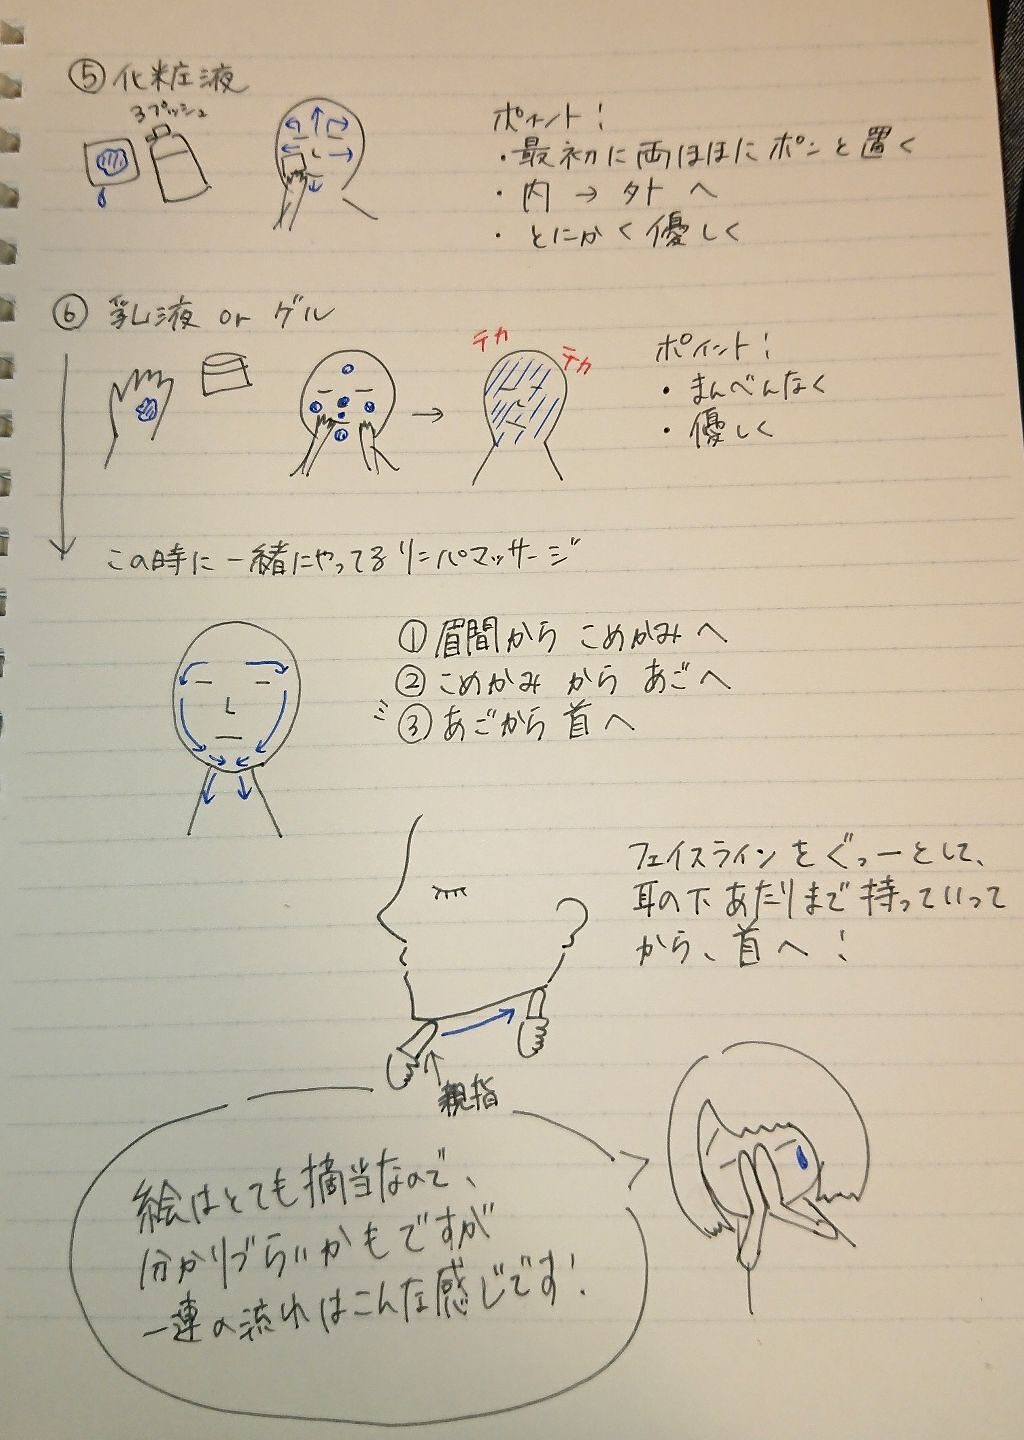 ⑤ 化粧液
3プッシュ
ポイント！
・最初に両ほほにポンと置く
・内→外へ
・とにかく優しく
⑥ 乳液 or ゲル
テカ
テカ
ポイント！
・まんべんなく
・優しく
この時に一緒にやってるリンパマッサージ
① 眉間からこめかみへ
② こめかみからあごへ
③ あごから首へ
フェイスラインをぐっーとして、
耳の下あたりまで持っていって
から、首へ！
親指
絵はとても摘当なので、
分かりづらいかもですが
一連の流れはこんな感じです！